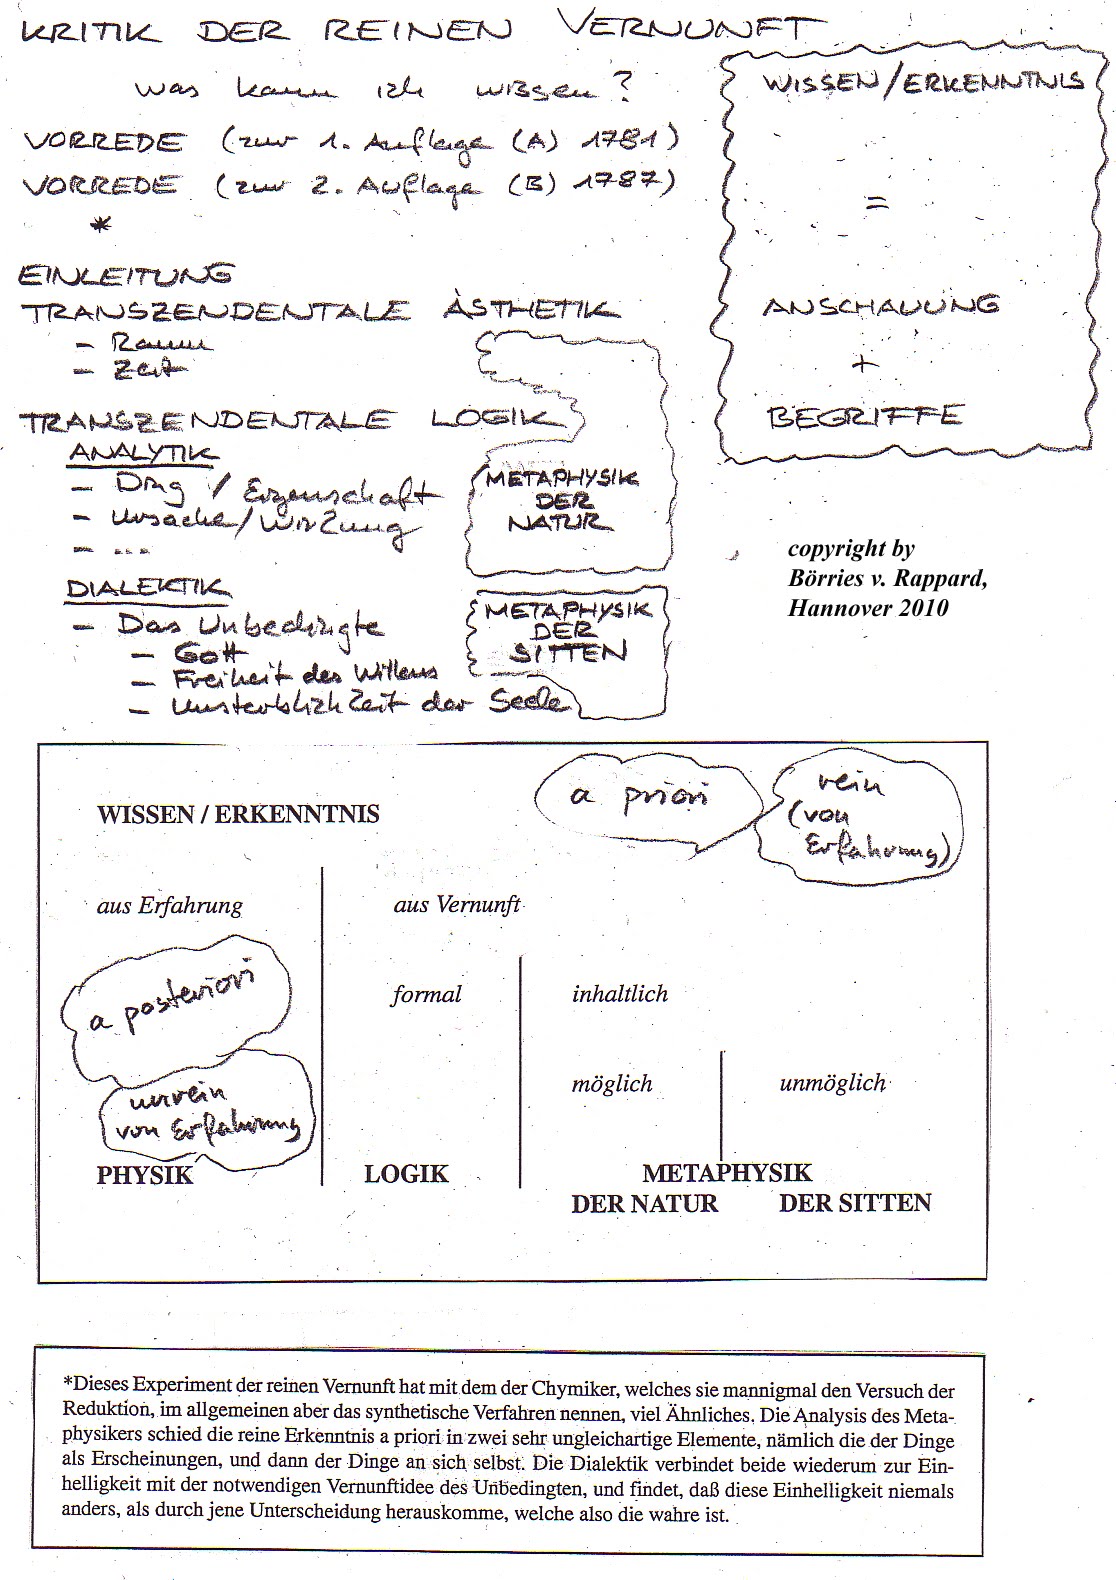 KRITIK DER REINEN VERNUNFT
was kann ich wissen?
VORREDE (zur 1. Auflage (A) 1781)
VORREDE (zur 2. Auflage (B) 1787)
*
EINLEITUNG
TRANSZENDENTALE ÄSTHETIK
- Raum
- Zeit
TRANSZENDENTALE LOGIK
ANALYTIK
- Ding / Eigenschaft
- Ursache/Wirkung
- ...
DIALEKTIK
- Das Unbedingte
- Gott
- Freiheit des Willens
- Unsterblichkeit der Seele
METAPHYSIK
DER
NATUR
METAPHYSIK
DER
SITTEN
WISSEN/ERKENNTNIS
=
ANSCHAUUNG
+
BEGRIFFE
copyright by
Börries v. Rappard,
Hannover 2010
WISSEN / ERKENNTNIS
a priori
rein
(von
Erfahrung)
aus Erfahrung
aus Vernunft
a posteriori
formal
inhaltlich
unrein
von Erfahrung
möglich
unmöglich
PHYSIK
LOGIK
METAPHYSIK
DER NATUR
DER SITTEN
*Dieses Experiment der reinen Vernunft hat mit dem der Chymiker, welches sie mannigmal den Versuch der
Reduktion, im allgemeinen aber das synthetische Verfahren nennen, viel Ähnliches. Die Analysis des Meta-
physikers schied die reine Erkenntnis a priori in zwei sehr ungleichartige Elemente, nämlich die der Dinge
als Erscheinungen, und dann der Dinge an sich selbst. Die Dialektik verbindet beide wiederum zur Ein-
helligkeit mit der notwendigen Vernunftidee des Unbedingten, und findet, daß diese Einhelligkeit niemals
anders, als durch jene Unterscheidung herauskomme, welche also die wahre ist.